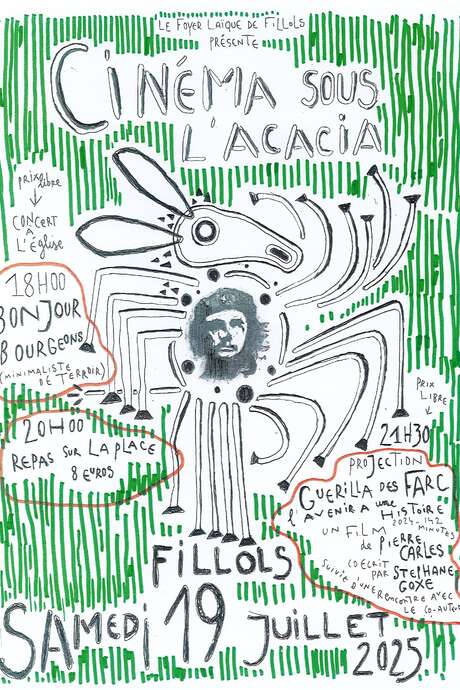 LE FOYER LAÏQUE DE FILLOLS
PRÉSENTE
CINÉMA SOUS
L'ACACIA
PRIX LIBRE
CONCERT
À
L'ÉGLISE
18H00
BONJOUR
BOURGEONS
(MINIMALISTE
DE TERROIR)
20H00
REPAS SUR LA PLACE
8 EUROS
PRIX
LIBRE
21H30
PROJECTION
GUERILLA DES FARC
L'AVENIR A UNE HISTOIRE
2024-142
MINUTES
UN FILM
de PIERRE
CARLES
COÉCRIT
PAR STEPHANE
GOXE
SUIVIE D'UNE RENCONTRE AVEC
LE CO-AUTEUR
FILLOLS
SAMEDI 19 JUILLET
2025